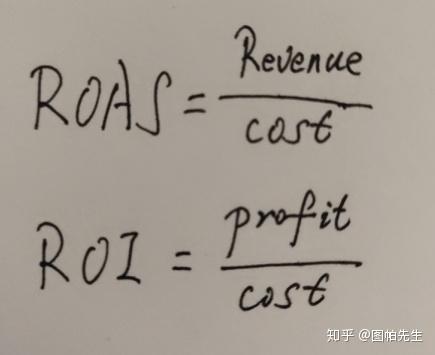 ROAS = Revenue / cost
ROI = profit / cost
知乎 @图帕先生